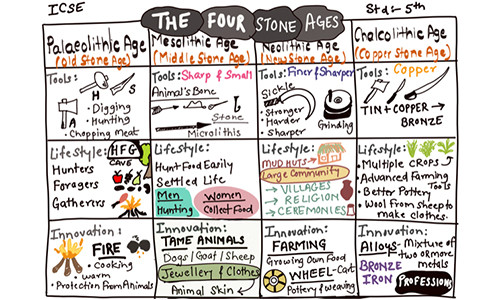 ICSE
THE FOUR STONE AGES
Std:- 5th
Palaeolithic Age
(Old Stone Age)
Tools:
H
S
A
• Digging
• Hunting
• Chopping meat
Lifestyle: HFG
CAVE
Hunters
Foragers
Gatherers
Innovation:
FIRE
• Cooking
• warm
• Protection From Animals
Mesolithic Age
(Middle Stone Age)
Tools: Sharp & Small
Animal's Bone
Stone
Microliths
Lifestyle:
Hunt Food Easily
Settled Life
Men
Hunting
Women
Collect Food
Innovation:
TAME ANIMALS
Dogs/Goat/Sheep
Jewellery & Clothes
Animal Skin
Neolithic Age
(New Stone Age)
Tools: Finer & Sharper
Sickle
• Stronger
• Harder
• Sharper
Grinding
Lifestyle:
MUD HUTS
Large Community
→ VILLAGES
→ RELIGION
→ CEREMONIES
Innovation:
FARMING
Growing Own Food
WHEEL-Cart
Pottery & weaving
Chalcolithic Age
(Copper Stone Age)
Tools: Copper
TIN + COPPER →
BRONZE
Lifestyle:
• Multiple CROPS
• Advanced Farming
Tools
• Better Pottery
• Wool From Sheep to
make clothes.
Innovation:
Alloys- Mixture of
two or more
metals
BRONZE
IRON
PROFESSIONS